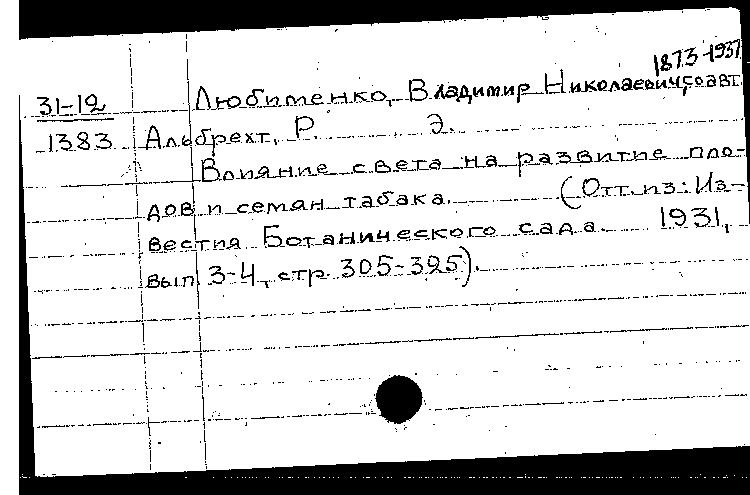 1873-1937
31-12 Любименко, Владимир Николаевич, соавт.
1383 Альбрехт, Р. Э.
Влияние света на развитие пло-
дов и семян табака. (Отт. из: Из-
вестия Ботанического сада. 1931,
вып 3-4, стр. 305-395).